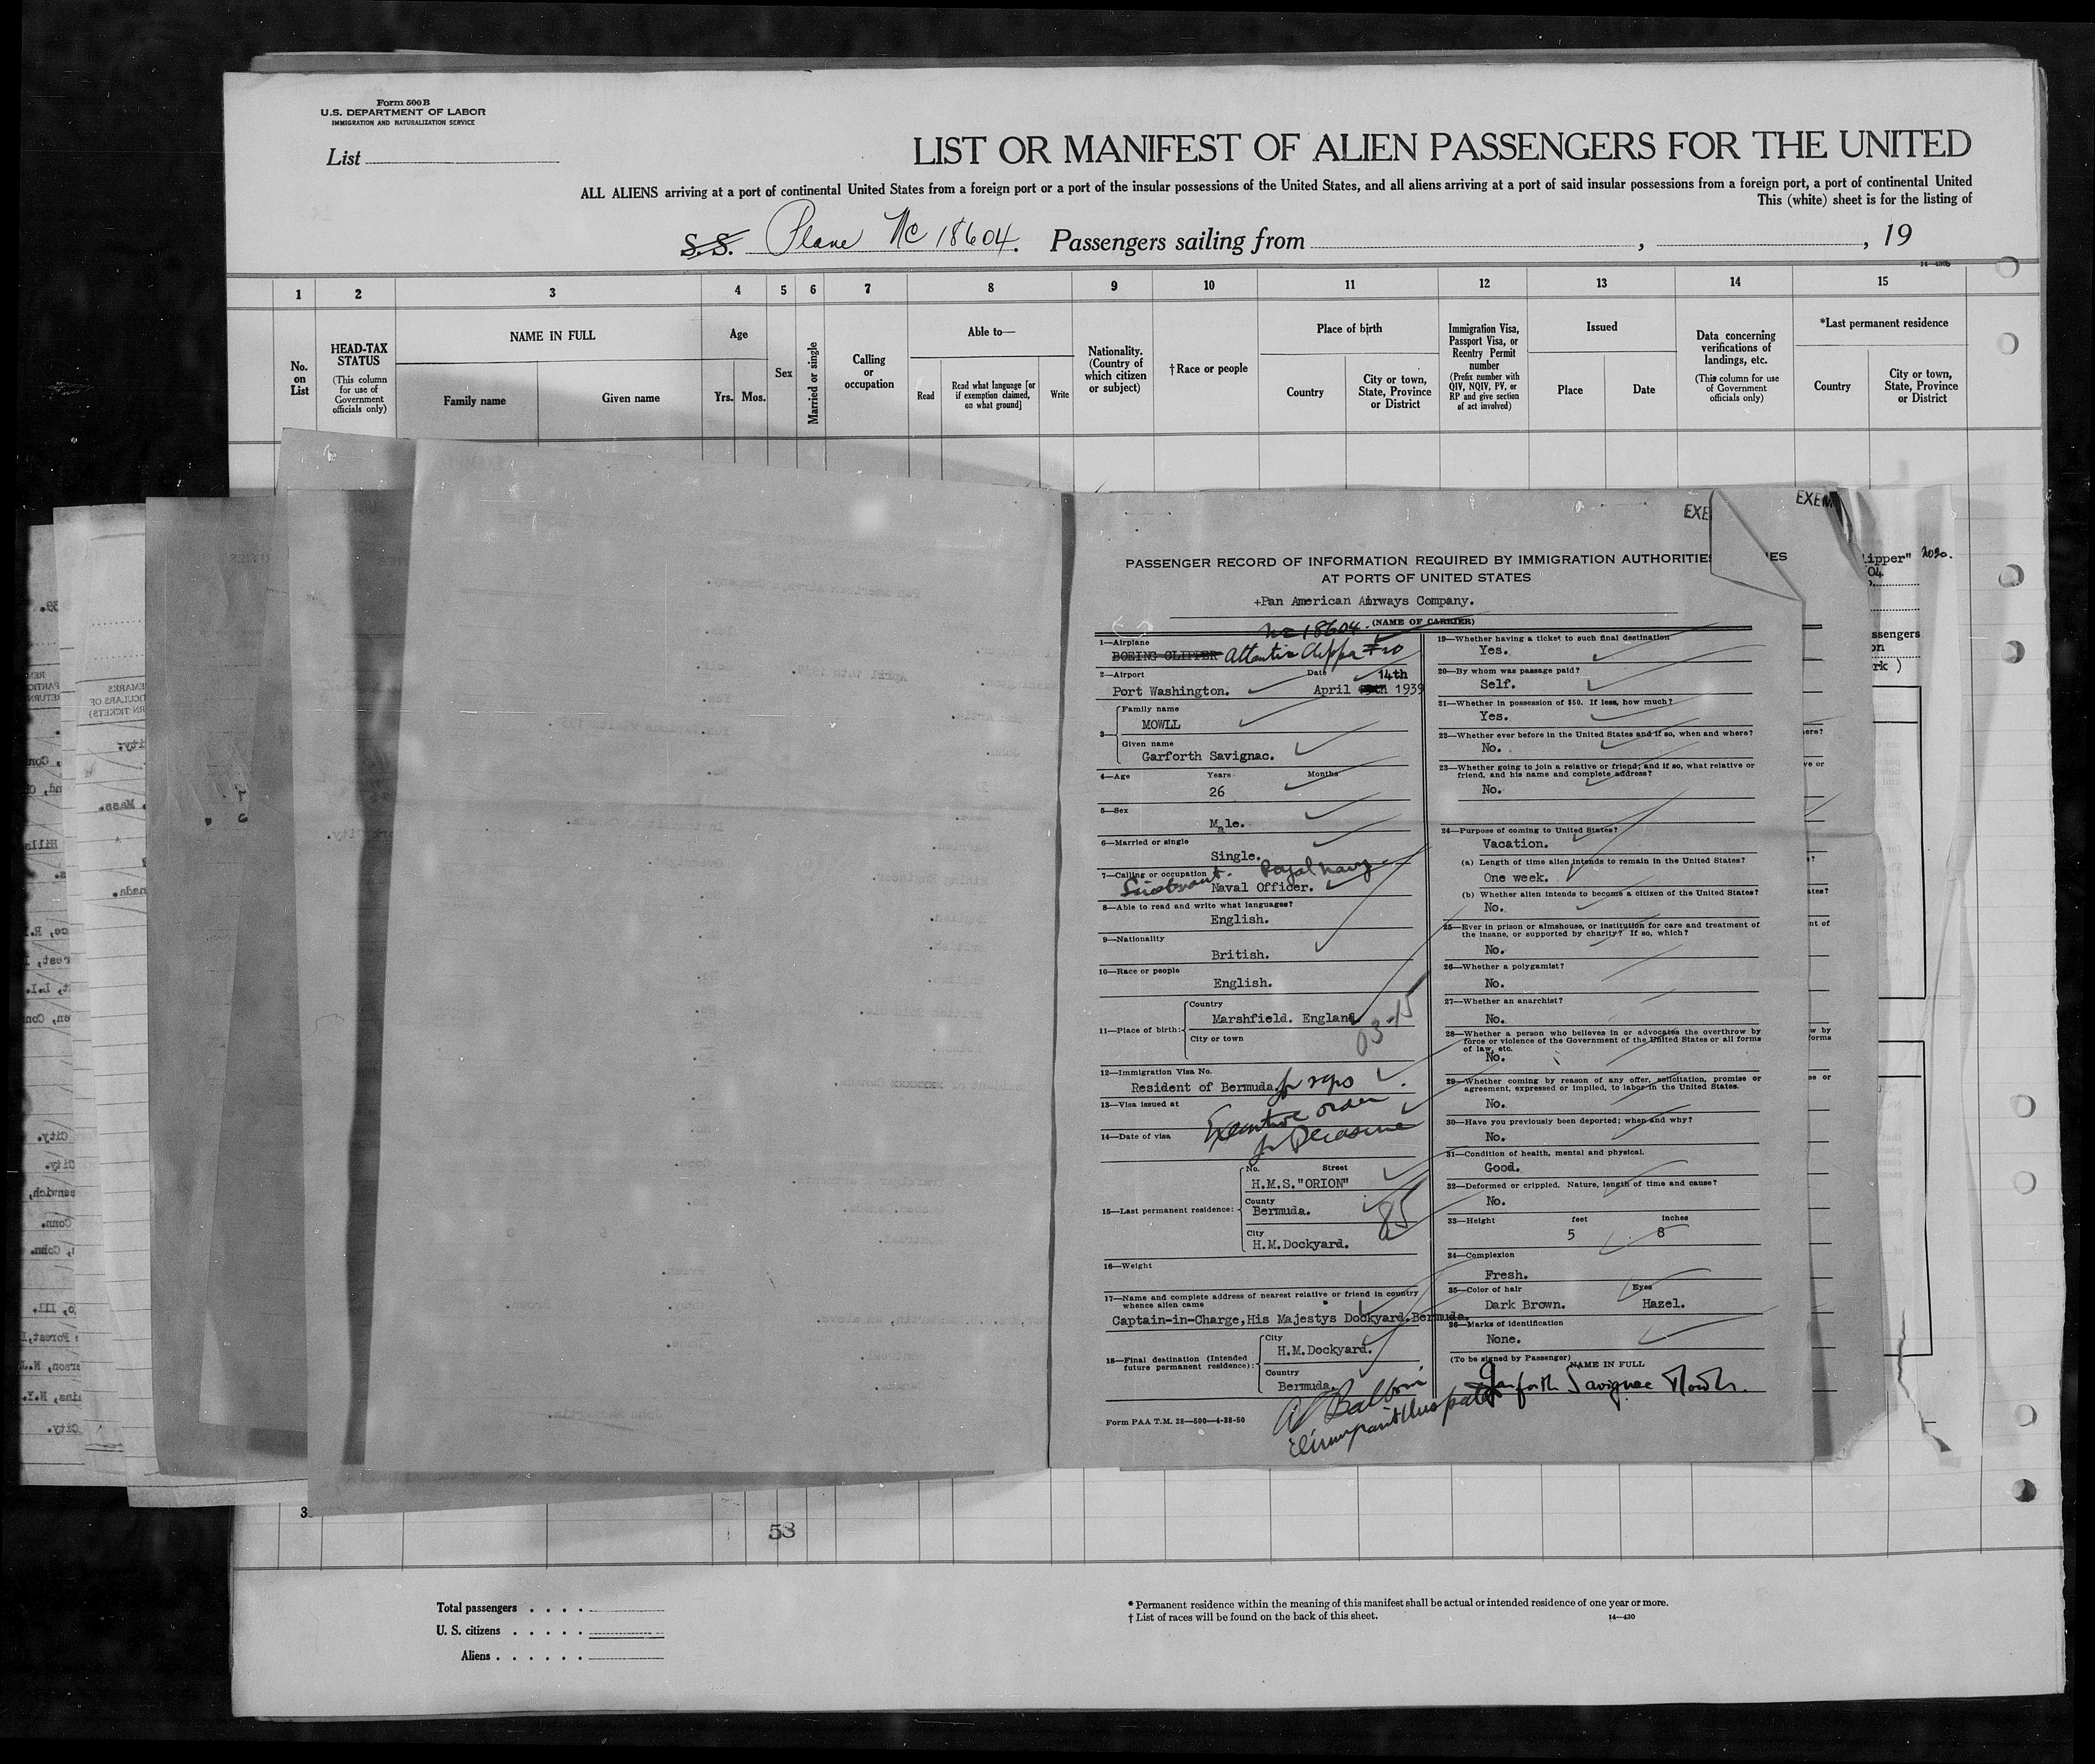 Form 500 B
U.S. DEPARTMENT OF LABOR
IMMIGRATION AND NATURALIZATION SERVICE
List
LIST OR MANIFEST OF ALIEN PASSENGERS FOR THE UNITED
ALL ALIENS arriving at a port of continental United States from a foreign port or a port of the insular possessions of the United States, and all aliens arriving at a port of said insular possessions from a foreign port, a port of continental United
This (white) sheet is for the listing of
S.S. Plane Nc 18604. Passengers sailing from , , 19
14—430b
1 2 3 4 5 6 7 8 9 10 11 12 13 14 15
No. on List
HEAD-TAX STATUS
(This column for use of Government officials only)
NAME IN FULL
Family name
Given name
Age
Yrs. Mos.
Sex
Married or single
Calling or occupation
Able to—
Read
Read what language [or if exemption claimed, on what ground]
Write
Nationality. (Country of which citizen or subject)
†Race or people
Place of birth
Country
City or town, State, Province or District
Immigration Visa, Passport Visa, or Reentry Permit number
(Prefix number with QIV, NQIV, PV, or RP and give section of act involved)
Issued
Place
Date
Data concerning verifications of landings, etc.
(This column for use of Government officials only)
*Last permanent residence
Country
City or town, State, Province or District
EXE
EXEM
PASSENGER RECORD OF INFORMATION REQUIRED BY IMMIGRATION AUTHORITIES
AT PORTS OF UNITED STATES
+Pan American Airways Company.
(NAME OF CARRIER)
Nc 18604.
1—Airplane
BOEING CLIPPER Atlantic Clipper #20
2—Airport Date 14th
Port Washington. April 1939
3—
Family name
MOWLL
Given name
Garforth Savignac.
4—Age Years Months
26
5—Sex
Male.
6—Married or single
Single.
7—Calling or occupation
Lieutenant. Royal Navy
Naval Officer.
8—Able to read and write what languages?
English.
9—Nationality
British.
10—Race or people
English.
11—Place of birth:
Country
Marshfield. England
City or town
03-15
12—Immigration Visa No.
Resident of Bermuda.
13—Visa issued at
Executive order
14—Date of visa
for Pleasure
15—Last permanent residence:
No. Street
H.M.S."ORION"
County
Bermuda.
85
City
H.M.Dockyard.
16—Weight
17—Name and complete address of nearest relative or friend in country whence alien came
Captain-in-Charge,His Majestys Dockyard.Bermuda.
18—Final destination (Intended future permanent residence):
City
H.M.Dockyard.
Country
Bermuda.
Form PAA T.M. 28—500—4-38-50
19—Whether having a ticket to such final destination
Yes.
20—By whom was passage paid?
Self.
21—Whether in possession of $50. If less, how much?
Yes.
22—Whether ever before in the United States and if so, when and where?
No.
23—Whether going to join a relative or friend; and if so, what relative or friend, and his name and complete address?
No.
24—Purpose of coming to United States?
Vacation.
(a) Length of time alien intends to remain in the United States?
One week.
(b) Whether alien intends to become a citizen of the United States?
No.
25—Ever in prison or almshouse, or institution for care and treatment of the insane, or supported by charity? If so, which?
No.
26—Whether a polygamist?
No.
27—Whether an anarchist?
No.
28—Whether a person who believes in or advocates the overthrow by force or violence of the Government of the United States or all forms of law, etc.
No.
29—Whether coming by reason of any offer, solicitation, promise or agreement, expressed or implied, to labor in the United States.
No.
30—Have you previously been deported; when and why?
No.
31—Condition of health, mental and physical.
Good.
32—Deformed or crippled. Nature, length of time and cause?
No.
33—Height feet inches
5 8
34—Complexion
Fresh.
35—Color of hair Eyes
Dark Brown. Hazel.
36—Marks of identification
None.
(To be signed by Passenger) NAME IN FULL
Garforth Savignac Mowll.
3
58
Total passengers . . . .
U. S. citizens . . . . .
Aliens . . . . . .
* Permanent residence within the meaning of this manifest shall be actual or intended residence of one year or more.
† List of races will be found on the back of this sheet.
14—430